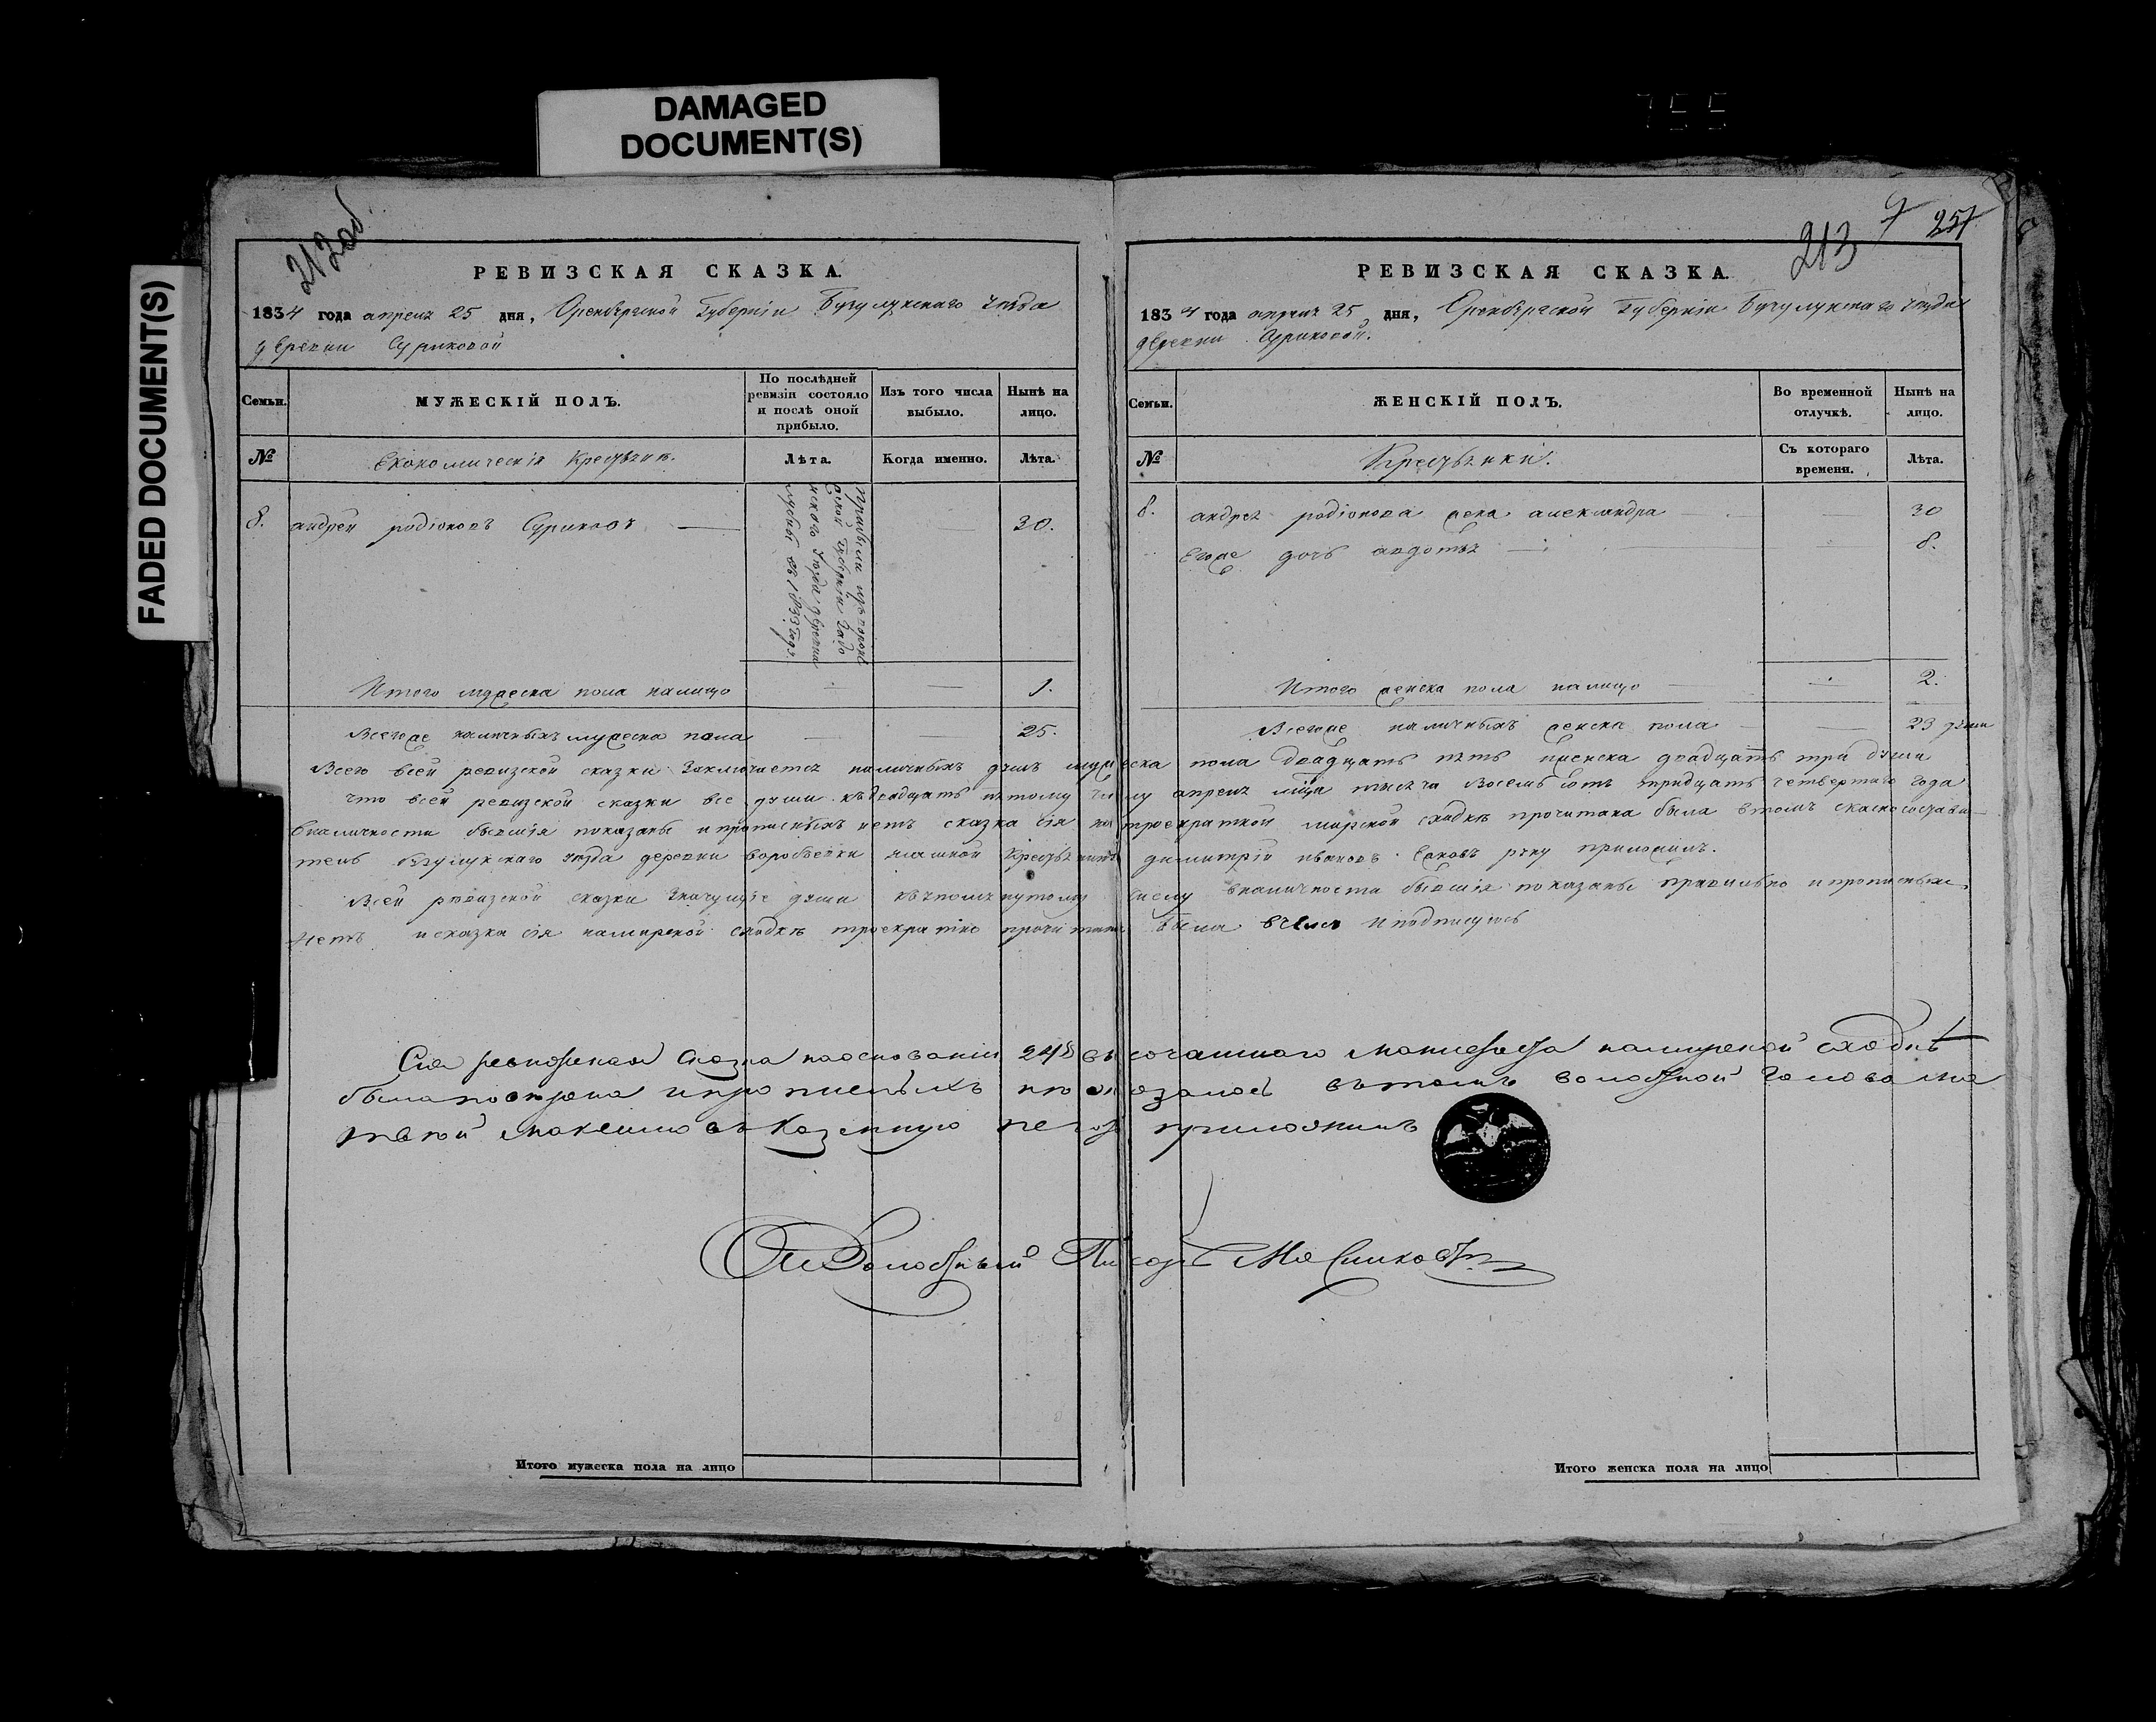 DAMAGED
DOCUMENT(S)
FADED DOCUMENT(S)
212 об
РЕВИЗСКАЯ СКАЗКА.
1834 года апреля 25 дня, Оренбургской Губернiи Бугулукскаго уѣзда
деревни Суриковой
Семьи.
МУЖЕСКIЙ ПОЛЪ.
По послѣдней
ревизiи состояло
и послѣ оной
прибыло.
Изъ того числа
выбыло.
Нынѣ на
лицо.
№
Економическiя Крестьяне.
Лѣта.
Когда именно.
Лѣта.
8. андрей родiоновъ Суриковъ 30.
Итого мужеска пола налицо 1.
Всегоже наличныхъ мужеска пола 25.
213 9 257
РЕВИЗСКАЯ СКАЗКА.
1834 года апреля 25 дня, Оренбургской Губернiи Бугулукскаго уѣзда
деревни Суриковой.
Семьи.
ЖЕНСКIЙ ПОЛЪ.
Во временной
отлучкѣ.
Нынѣ на
лицо.
№
Крестьянки.
Съ котораго
времени.
Лѣта.
8. андрея родiонова жена александра 30
Егоже дочь авдотья 8.
Итого женска пола налицо 2.
Всегоже наличныхъ женска пола 23 души
Всего всей ревизской сказки Заключается наличныхъ душъ мужеска пола двадцать пять иженска двадцать три души
что всей ревизской сказки все души къдвадцать пятому числу апреля мца тысяча восемь сотъ тридцать четвертаго года
вналичности бывшiя показаны ипрописныхъ нетъ сказка сiя на троекратной мирской сходкѣ прочитана была втомъ
тель Бугулукскаго уѣзда деревни воробьевки Крестьянинъ димитрiй ивановъ руку приложилъ.
Всей ревизской сказки души числу вналичности бывшiя показаны правильно ипрописныхъ
нетъ исказка сiя намирской сходкѣ троекратно прочитана была вчемъ иподписуюсь
Сiя ревизская Сказка наоснованiи 24§ высочайшаго манифеста намирской сходкѣ
была поверена ипрописныхъ не оказалось вътомъ волостной Голова
Максимовъ Казенную печать приложилъ
Волостный Писарь
Итого мужеска пола на лицо
Итого женска пола на лицо